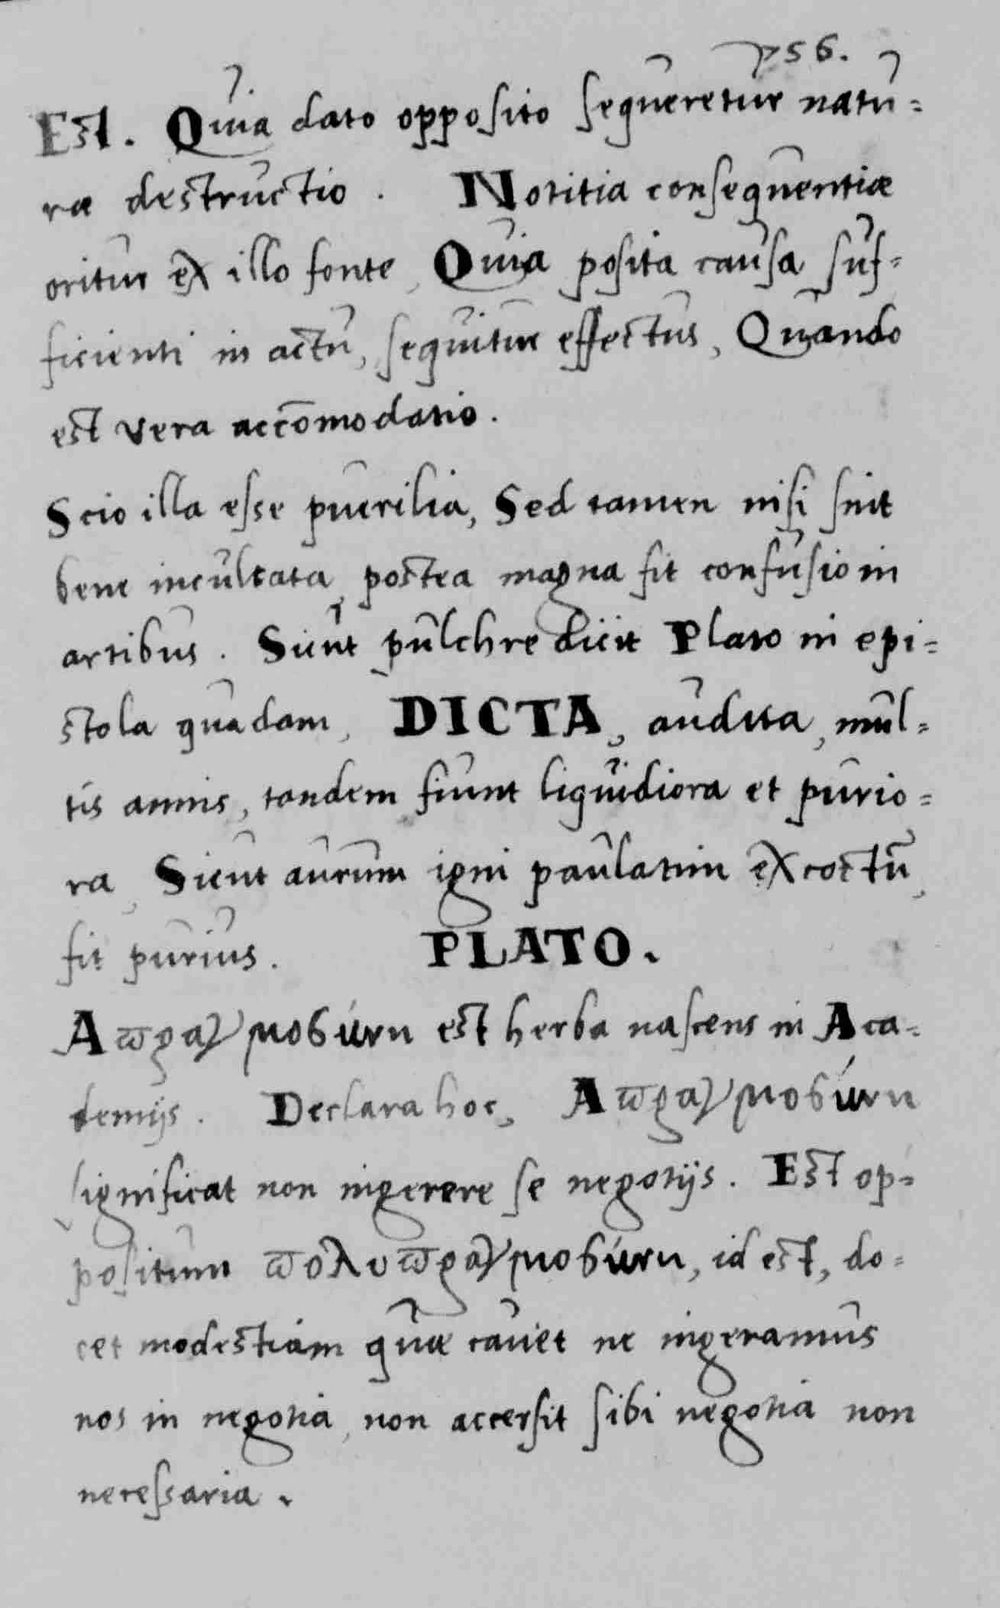 756.
Est. Quia dato opposito sequeretur natu-
ræ destructio. Notitia consequentiæ
oritur ex illo fonte, Quia posita causa suf-
ficienti in actu, sequitur effectus, Quando
est vera accōmodatio.
Scio illa esse puerilia, Sed tamen nisi sint
bene inculcata, postea magna fit confusio in
artibus. Sicut pulchre dicit Plato in epi-
stola quadam, DICTA, audita, mul-
tis annis, tandem fiunt liquidiora et purio-
ra, Sicut aurum igni paulatim excoctū,
fit purius. PLATO.
Aπραγμοσύνη est herba nascens in Aca-
demijs. Declara hoc, Aπραγμοσύνη
significat non ingerere se negotijs. Est op-
positum πολυπραγμοσύνη, id est, do-
cet modestiam quæ cavet ne ingeramus
nos in negotia, non accersit sibi negotia non
necessaria.